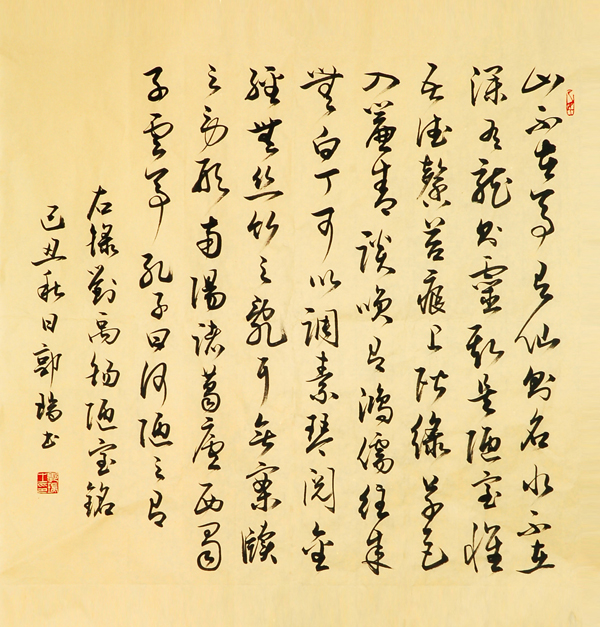 山不在高有仙則名水不在
深有龍則靈斯是陋室惟
吾德馨苔痕上階綠草色
入簾青談咲有鴻儒往來
無白丁可以調素琴閱金
經無絲竹之亂耳無案牘
之勞形南陽諸葛廬西蜀
子雲亭孔子曰何陋之有
右錄劉禹錫陋室銘
己丑秋日郭瑞书